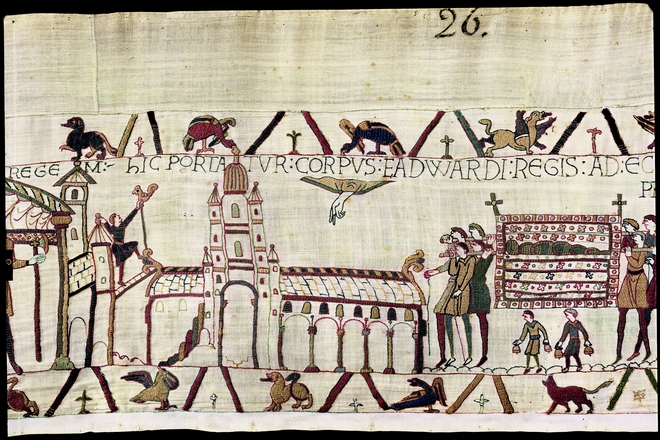 26.
REGE M:- hIC PORTATVR: CORPVS: EADWARDI: REGIS: AD: EC
P